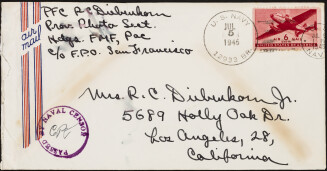 PFC R C Diebenkorn
Prov. Photo Sect.
Hdqs. FMF, Pac
c/o F.P.O. San Francisco
air mail
U.S. NAVY
JUL
1945
12933 BR.
6¢
UNITED STATES OF AMERICA
Mrs. R. C. Diebenkorn Jr.
5689 Holly Oak Dr.
Los Angeles, 28,
California
PASSED BY NAVAL CENSOR